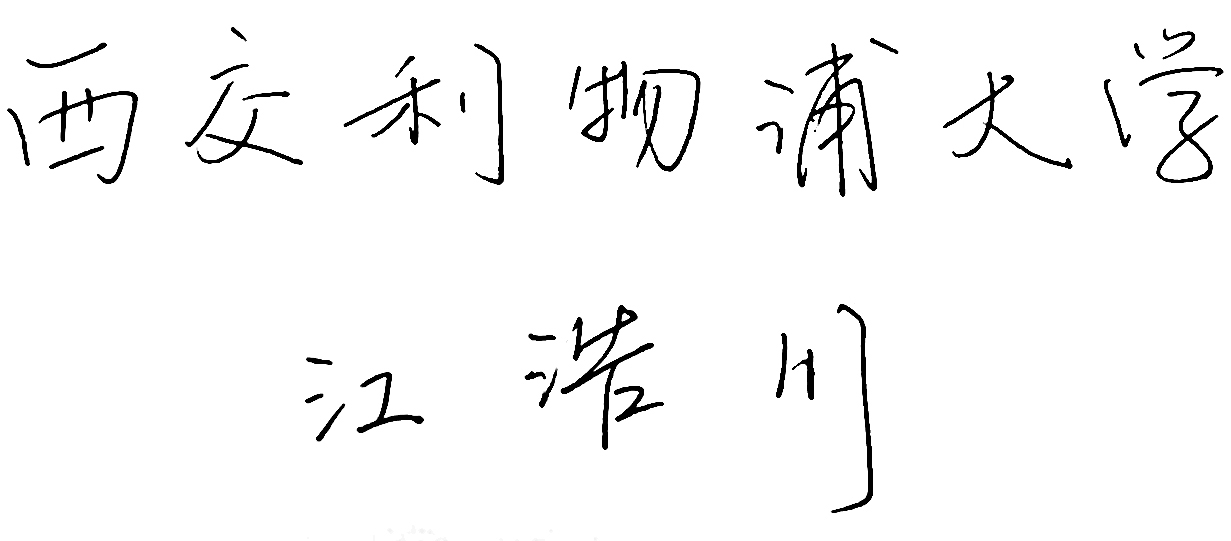 西交利物浦大学
江浩川